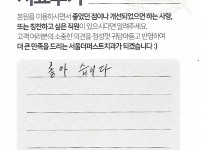 본원을 이용하시면서 좋았던 점이나 개선되었으면 하는 사항,
또는 칭찬하고 싶은 직원이 있으시다면 말해주세요.
고객 여러분의 소중한 의견을 정성껏 귀담아듣고 반영하여
더 큰 만족을 드리는 서울더퍼스트치과가 되겠습니다 :)
좋아 습니다